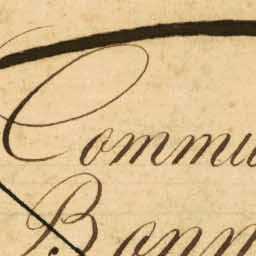 Commu
Bonn